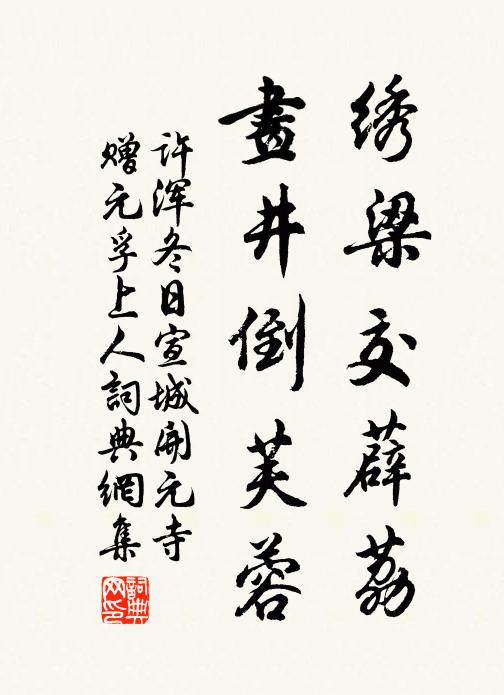 绣梁交薜荔
畫井倒芙蓉
许浑冬日宣城開元寺
赠元孚上人詞典網集
詞典網印